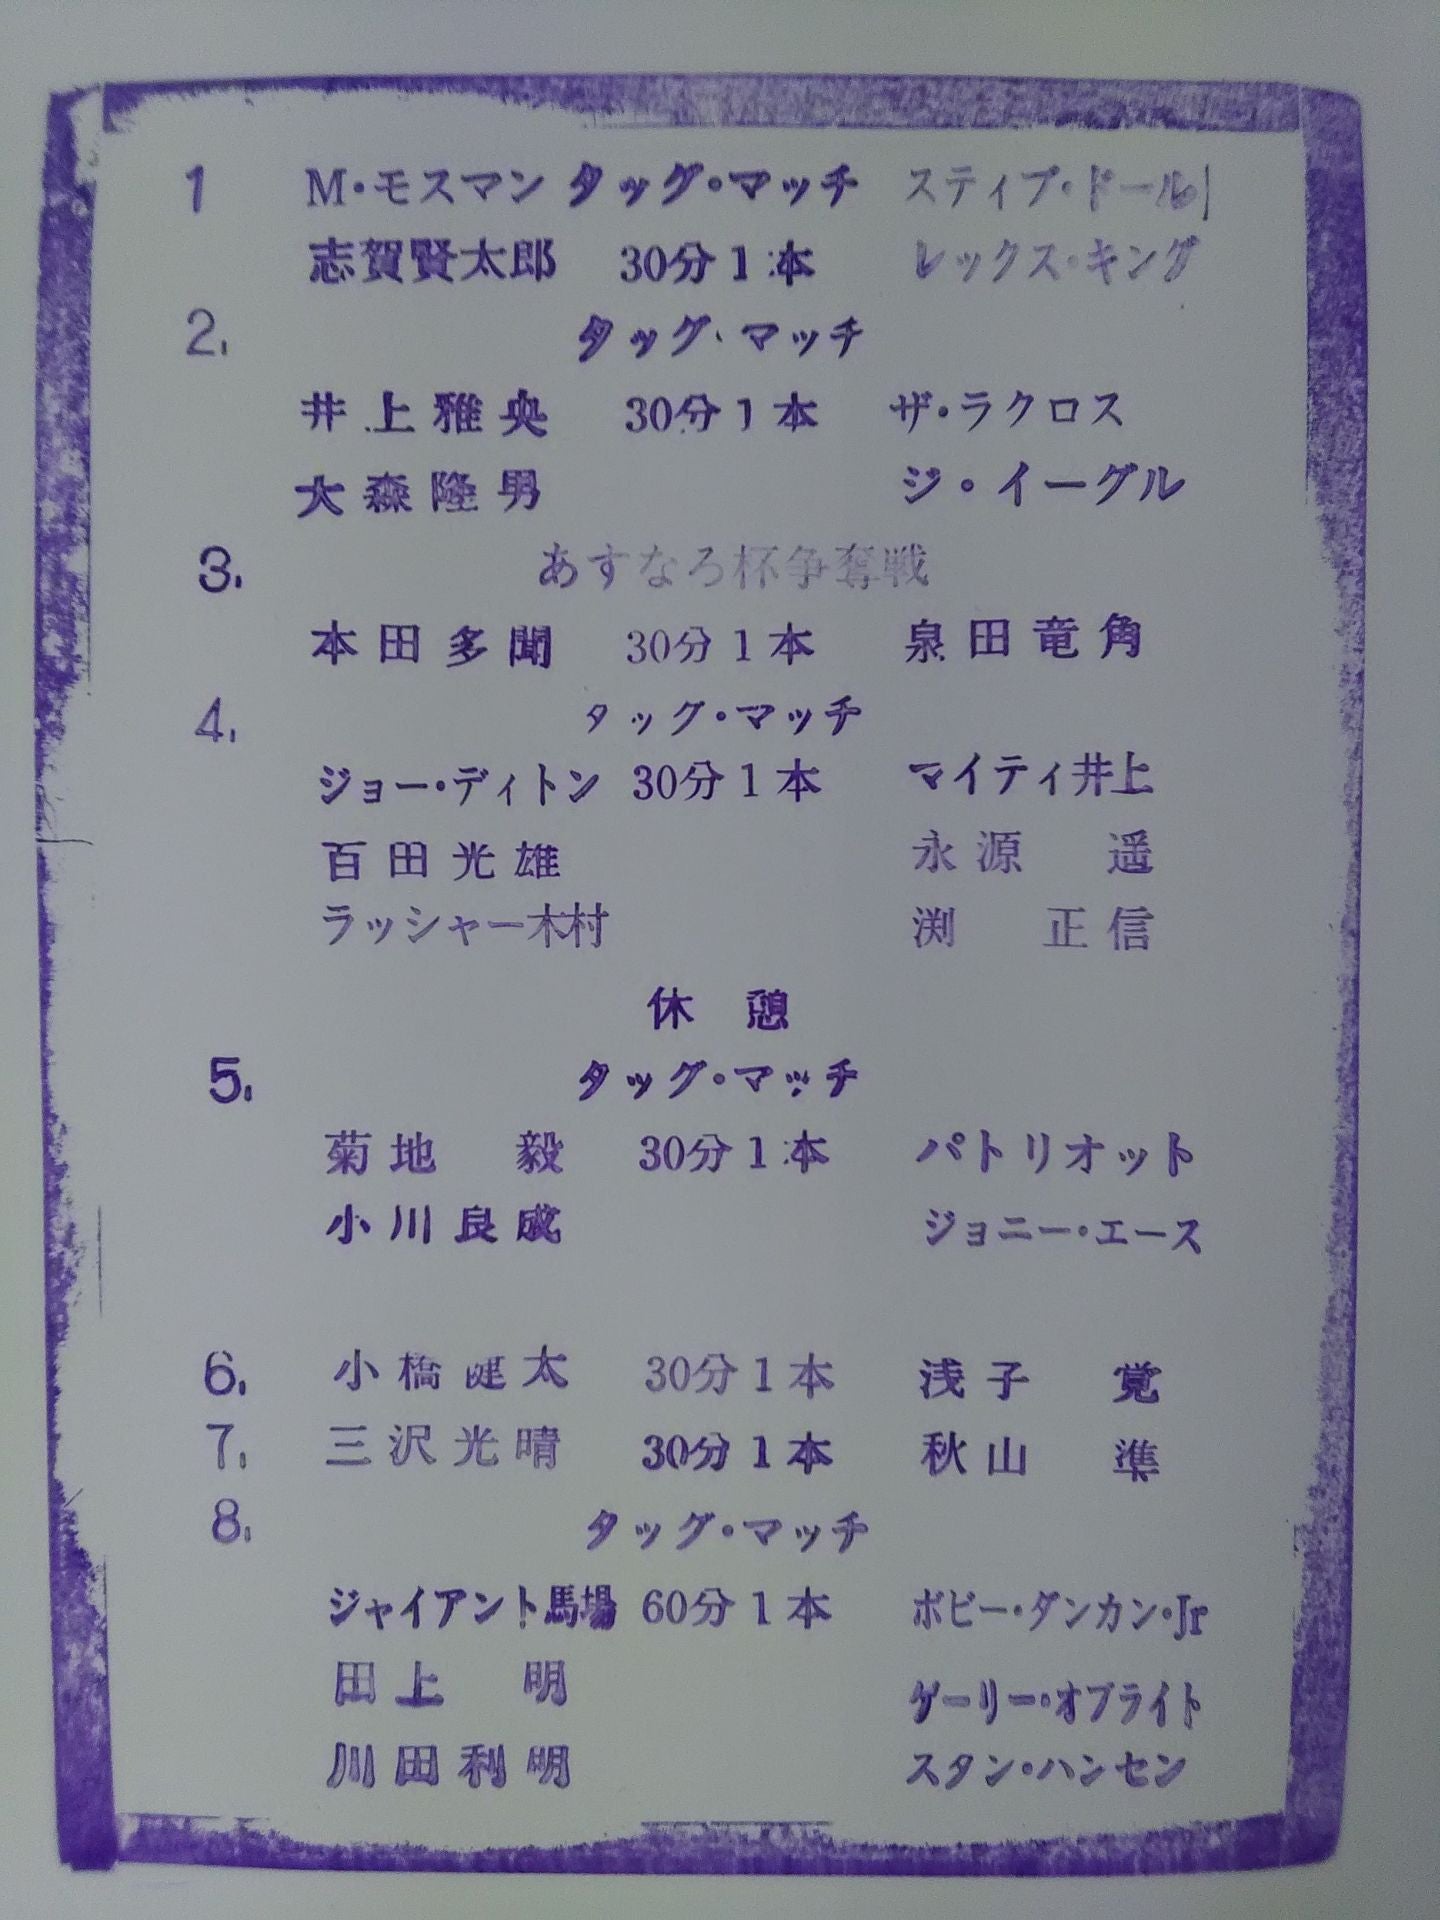 1 M・モスマン タッグ・マッチ スティブ・ドール
志賀賢太郎 30分1本 レックス・キング
2. タッグ・マッチ
井上雅央 30分1本 ザ・ラクロス
大森隆男 ジ・イーグル
3. あすなろ杯争奪戦
本田多聞 30分1本 泉田竜角
4. タッグ・マッチ
ジョー・ディトン 30分1本 マイティ井上
百田光雄 永源 遥
ラッシャー木村 渕 正信
休憩
5. タッグ・マッチ
菊地 毅 30分1本 パトリオット
小川良成 ジョニー・エース
6. 小橋健太 30分1本 浅子 覚
7. 三沢光晴 30分1本 秋山 準
8. タッグ・マッチ
ジャイアント馬場 60分1本 ボビー・ダンカン・Jr
田上 明 ゲーリー・オブライト
川田利明 スタン・ハンセン